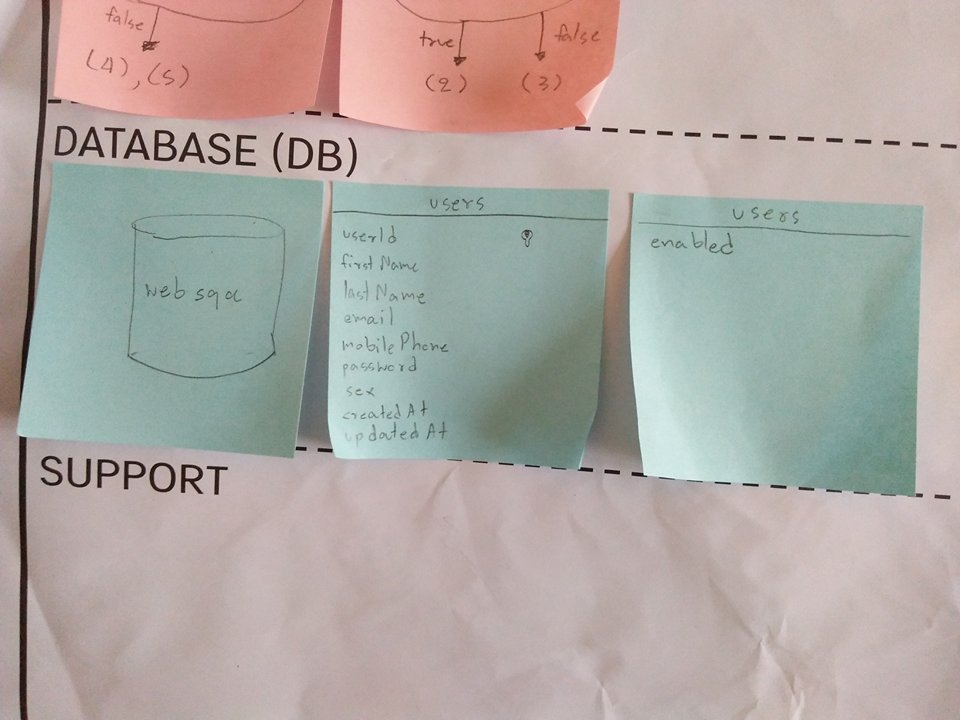 false
(4),(5)
true
false
(2)
(3)
DATABASE (DB)
web sqa
users
userId
firstName
lastName
email
mobilePhone
password
sex
createdAt
updatedAt
users
enabled
SUPPORT